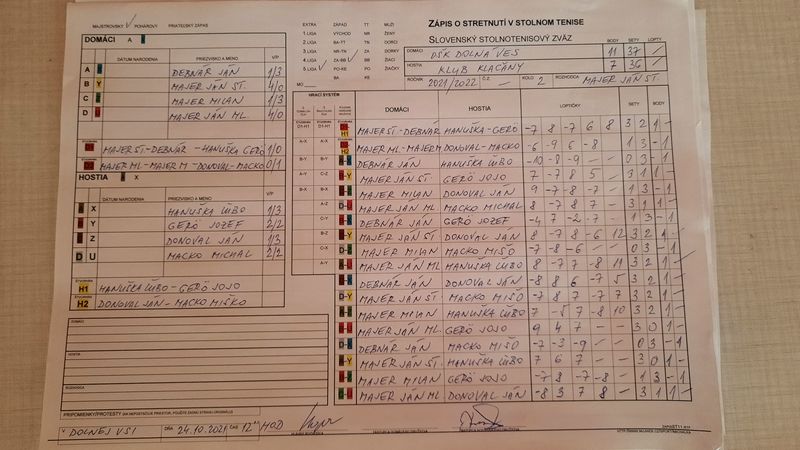 MAJSTROVSKÝ √ POHÁROVÝ PRIATEĽSKÝ ZÁPAS
DOMÁCI A
DÁTUM NARODENIA PRIEZVISKO A MENO V/P
A DEBNÁR JÁN 1/3
B MAJER JÁN ST. 4/0
C MAJER MILAN 1/3
D MAJER JÁN ML 4/0
D1 MAJER ST - DEBNÁR - HANUŠKA GERÖ 1/0
MAJER ML - MAJER M - DONOVAL - MACKO 0/1
HOSTIA X
DÁTUM NARODENIA PRIEZVISKO A MENO V/P
X HANUŠKA ĽUBO 1/3
Y GERÖ JOZEF 2/2
Z DONOVAL JÁN 1/3
D U MACKO MICHAL 2/2
H1 HANUŠKA ĽUBO - GERÖ JOJO
H2 DONOVAL JÁN - MACKO MIŠKO
DOMÁCI
HOSTIA
ROZHODCA
PRIPOMIENKY/PROTESTY
V DOLNEJ VSI DŇA 24.10.2021 ČAS 12 HOD
EXTRA ZÁPAD TT MUŽI
1. LIGA VÝCHOD NR ŽENY
2. LIGA BA-TT TN DORCI
3. LIGA NR-TN ZA DORKY
4. LIGA ZA-BB √ BB ŽIACI
5. LIGA √ PO-KE PO ŽIAČKY
MO BA KE
ZÁPIS O STRETNUTÍ V STOLNOM TENISE
SLOVENSKÝ STOLNOTENISOVÝ ZVÄZ
BODY SETY LOPTY
DOMÁCI DŠK DOLNÁ VES 11 37 /
HOSTIA KLUB KLAČANY 7 36 /
ROČNÍK 2021/2022 Č.Z. - KOLO 2 ROZHODCA MAJER JÁN ST.
HRACÍ SYSTÉM
DOMÁCI HOSTIA LOPTIČKY SETY BODY
MAJER ST - DEBNÁR HANUŠKA - GERÖ -7 8 -7 6 8 3 2 1 -
MAJER ML - MAJER M DONOVAL - MACKO -6 -9 6 -8 1 3 - 1
DEBNÁR JÁN HANUŠKA ĽUBO -10 -8 -9 - - 0 3 - 1
MAJER JÁN ST GERÖ JOJO 7 -7 8 5 / 3 1 1 /
MAJER MILAN DONOVAL JÁN 9 -7 -8 -7 - 1 3 - 1
MAJER JÁN ML MACKO MICHAL 8 -7 8 7 - 3 1 1 -
DEBNÁR JÁN GERÖ JOZEF -4 7 -2 -7 - 1 3 - 1
MAJER JÁN ST DONOVAL JÁN -7 8 -8 6 12 3 2 1 -
MAJER MILAN MACKO MIŠO -7 -8 -6 - - 0 3 - 1
MAJER JÁN ML HANUŠKA ĽUBO 8 -7 7 -8 11 3 2 1 -
DEBNÁR JÁN DONOVAL JÁN -8 8 6 -7 5 3 2 1 -
MAJER JÁN ST MACKO MIŠO -7 8 7 -7 7 3 2 1 -
MAJER MILAN HANUŠKA ĽUBO 7 -5 7 -8 10 3 2 1 -
MAJER JÁN ML GERÖ JOJO 9 4 7 - - 3 0 1 -
DEBNÁR JÁN MACKO MIŠO -7 -3 -9 - - 0 3 - 1
MAJER JÁN ST. HANUŠKA ĽUBO 7 6 7 - - 3 0 1 -
MAJER MILAN GERÖ JOJO -7 8 -7 -8 - 1 3 - 1
MAJER JÁN ML DONOVAL JÁN -8 3 7 8 - 3 1 1 -